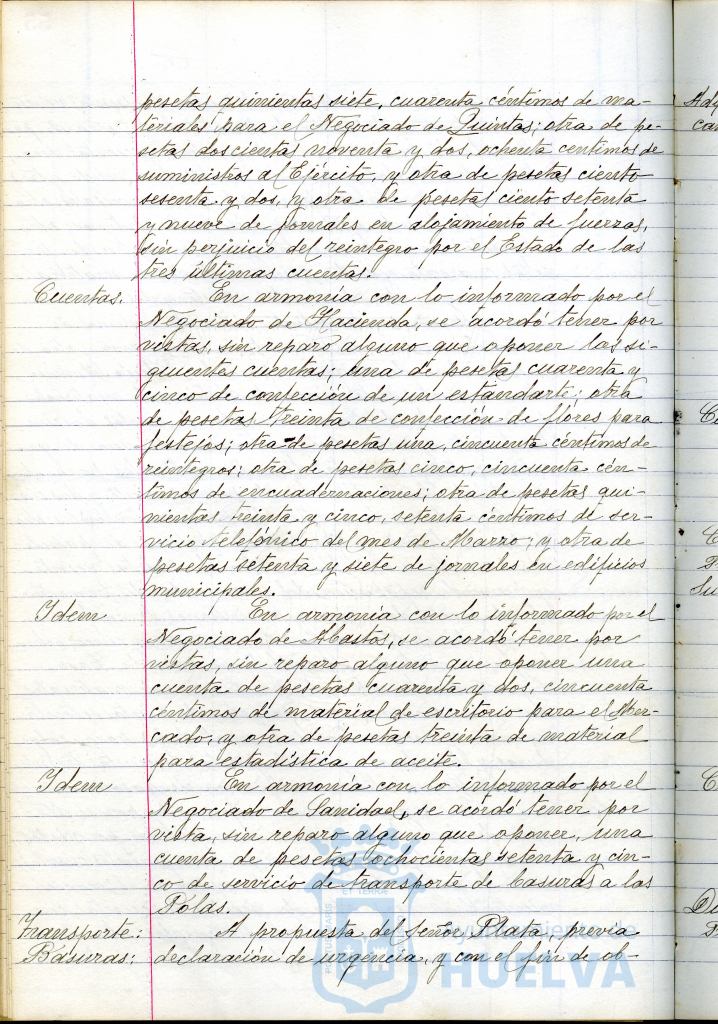 pesetas quinientas siete, cuarenta céntimos de ma-
teriales para el Negociado de Quintas; otra de pe-
setas doscientas noventa y dos, ochenta centimos de
suministros al Ejército, y otra de pesetas ciento
sesenta y dos, y otra de pesetas ciento setenta
y nueve de jornales en alojamiento de fuerzas,
sin perjuicio del reintegro por el Estado de las
tres últimas cuentas.
Cuentas. En armonía con lo informado por el
Negociado de Hacienda, se acordó tener por
vistas, sin reparo alguno que oponer las si-
guientes cuentas; una de pesetas cuarenta y
cinco de confección de un estandarte; otra
de pesetas treinta de confección de flores para
festejos; otra de pesetas una, cincuenta céntimos de
reintegros; otra de pesetas cinco, cincuenta cén-
timos de encuadernaciones; otra de pesetas qui-
nientas treinta y cinco, setenta céntimos de ser-
vicio telefónico del mes de Marzo; y otra de
pesetas setenta y siete de jornales en edificios
municipales.
Idem En armonía con lo informado por el
Negociado de Abastos, se acordó tener por
vistas, sin reparo alguno que oponer una
cuenta de pesetas cuarenta y dos, cincuenta
céntimos de material de escritorio para el Mer-
cado, y otra de pesetas treinta de material
para estadística de aceite.
Idem En armonía con lo informado por el
Negociado de Sanidad, se acordó tener por
vista, sin reparo alguno que oponer, una
cuenta de pesetas ochocientas setenta y cin-
co de servicio de transporte de basuras a las
Polas.
Transporte: A propuesta del señor Plata, previa
Basuras: declaración de urgencia, y con el fin de ob-
HUELVA